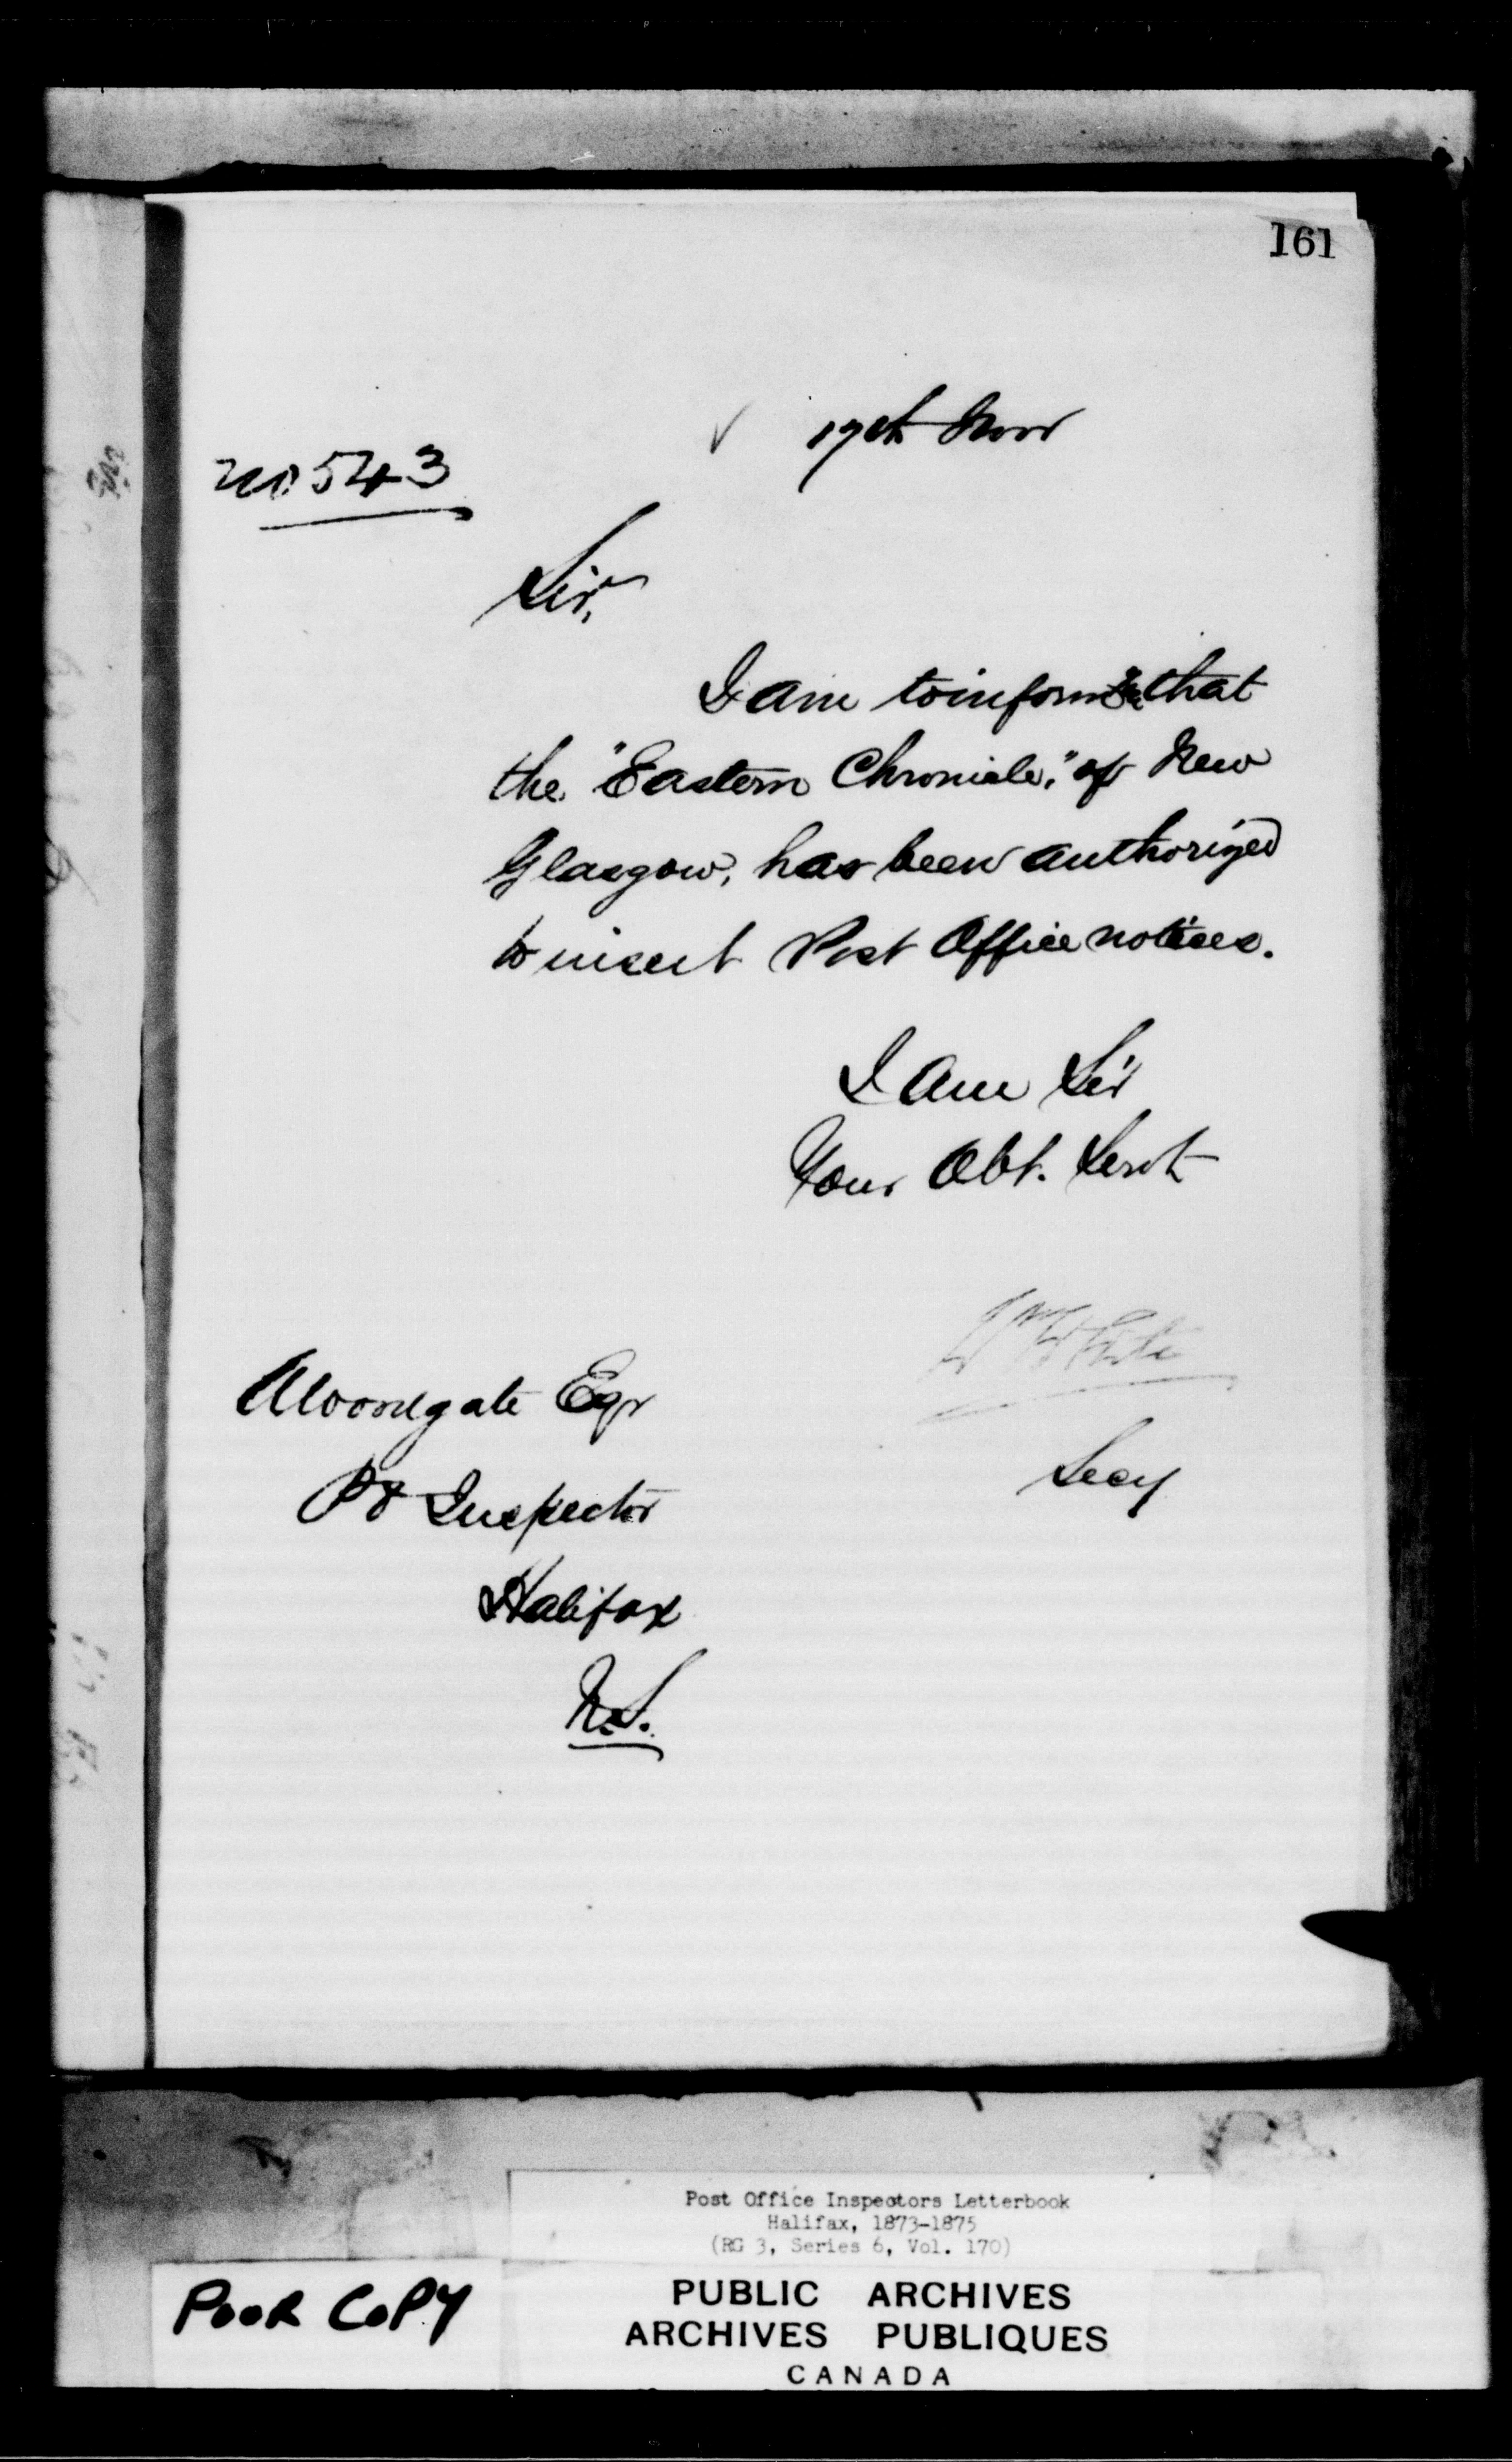 161
✓ 17th Novr
No 543
Sir,
I am to inform you that
the "Eastern Chronicle," of New
Glasgow, has been authorized
to insert Post Office notices.
I am Sir
Your Obt. Servt
Wm White
A Woodgate Eqr
PO Inspector
Secy
Halifax
N.S.
Post Office Inspectors Letterbook
Halifax, 1873-1875
(RG 3, Series 6, Vol. 170)
POOR COPY
PUBLIC ARCHIVES
ARCHIVES PUBLIQUES
CANADA